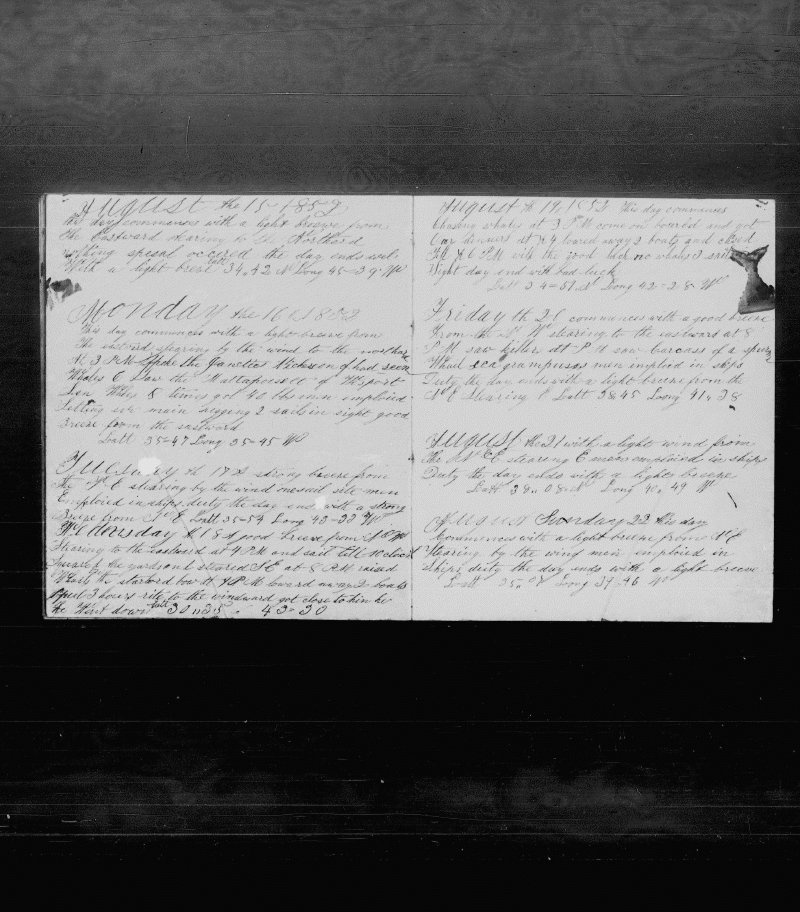 August the 15 1852
this day commences with a light breeze from
the Eastward stearing to the Northard
nothing spesal occured the day ends
With a light breze Latt 34,,42 N Long 45-39 W
Monday the 16 1852
This day commences with a light breeze from
the eastard stearing by the wind to the
At 3 PM Spoke the had seen
Whales 6 Saw the Mattapoisett of Wesport
8 times got 90 bbs men imploid
Setting up main riging 2 sails in sight good
Breeze from the eastward
Latt 35-47 Long 35-45 W
Tuesday th 17 a strong breeze from
the N E stearing by the wind one sail men
Emploied in ships duty the day end with a strong
Breeze from N E Latt 35-54 Long 43-33 W
Wednesday th 18 a good breeze from
Stearing to the Eastward at 4 PM and sail till 10 clock
steared SE at 8 PM raised
Whale the starbord bow at PM lowerd away 2 boats
3 hours to the windward got close to him he
he Went down Latt 36,,35 43-30
August th 19, 1852 This day commences
Chasing whales at 3 PM come on boared and got
Our dinners at 4 loared away 2 boats and chased
till 6 PM with the good luck no whales 2 sails
Sight day end with bad luck
Latt 34-51 N Long 42-28 W
Friday th 20 commences with a good breeze
From the N W stearing to the eastward at 8
P.M. saw killers at PM saw carcass of a sperm
Whale grampuses men imploid in ships
Duty the day ends with a light breeze from the
N E Stearing E Latt 38 45 Long 41,, 38
August the 21 with a light wind from
the N E stearing E men emploied in ships
Duty the day ends with a light breeze
Latt 38,, 08 N Long 40,, 49 W
August Sunday 22 this day
Commences with a light breeze from N E
Stearing by the wind men imploid in
Ships duty the day ends with a light breeze
Latt 35,, 08 Long 39,, 46 W